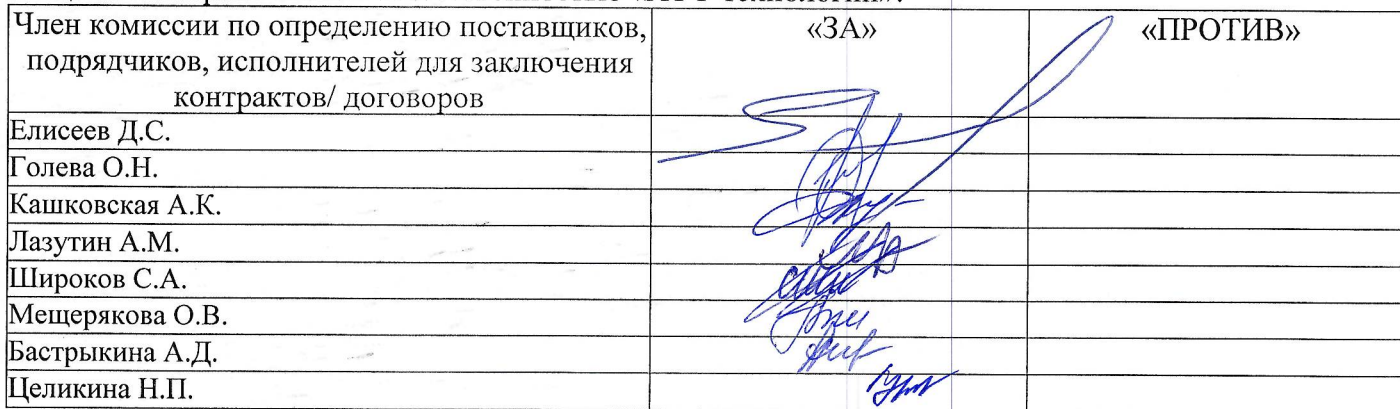 Член комиссии по определению поставщиков, «ЗА» «ПРОТИВ»
подрядчиков, исполнителей для заключения
контрактов/ договоров
Елисеев Д.С.
Голева О.Н.
Кашковская А.К.
Лазутин А.М.
Широков С.А.
Мещерякова О.В.
Бастрыкина А.Д.
Целикина Н.П.